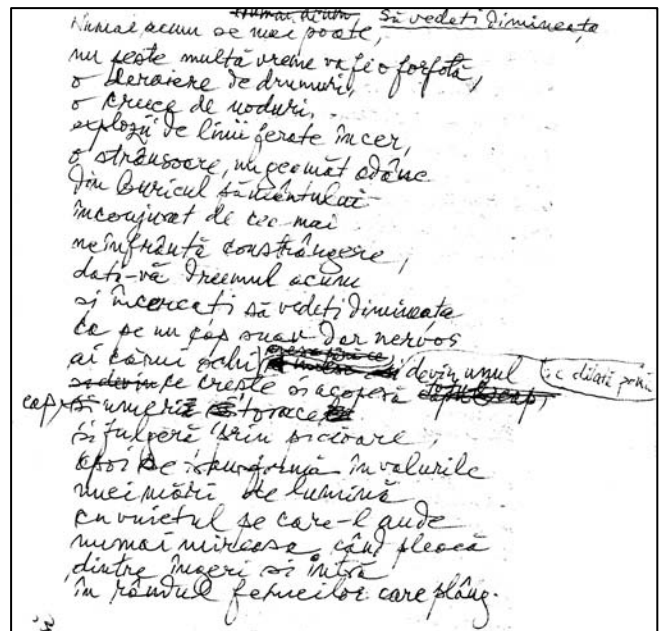 Să vedeți dimineața
Numai acum se mai poate,
nu peste multă vreme va fi o forfotă,
o deraiere de drumuri,
o cruce de noduri,
explozii de linii ferate în cer,
o strânsoare, un geamăt adânc
din buricul pământului
înconjurat de cea mai
neînfrântă constrângere,
dați-vă drumul acum
și încercați să vedeți dimineața
ca pe un cap suav dar nervos
ai cărui ochi se dilată până devin unul
ce crește și acoperă
cap, și umeri și torace
și fulgeră prin picioare,
apoi se transformă în valurile
unei mări de lumină
cu vuietul pe care-l aude
numai mireasa când pleacă
dintre îngeri și intră
în rândul femeilor care plâng.